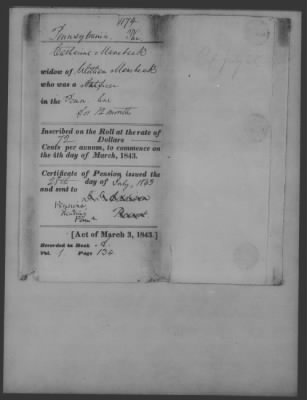 1174
Pennsylvania. Pha
Catherine
widow of
who was a Artificer
in the Penn. Line
for 12 months
Inscribed on the Roll at the rate of
72 Dollars
Cents per annum, to commence on
the 4th day of March, 1843.
Certificate of Pension issued the
28th day of July, 1843
and sent to
Reading
Penna
[Act of March 3, 1843.]
Recorded in Book A.
Vol. 1 Page 134